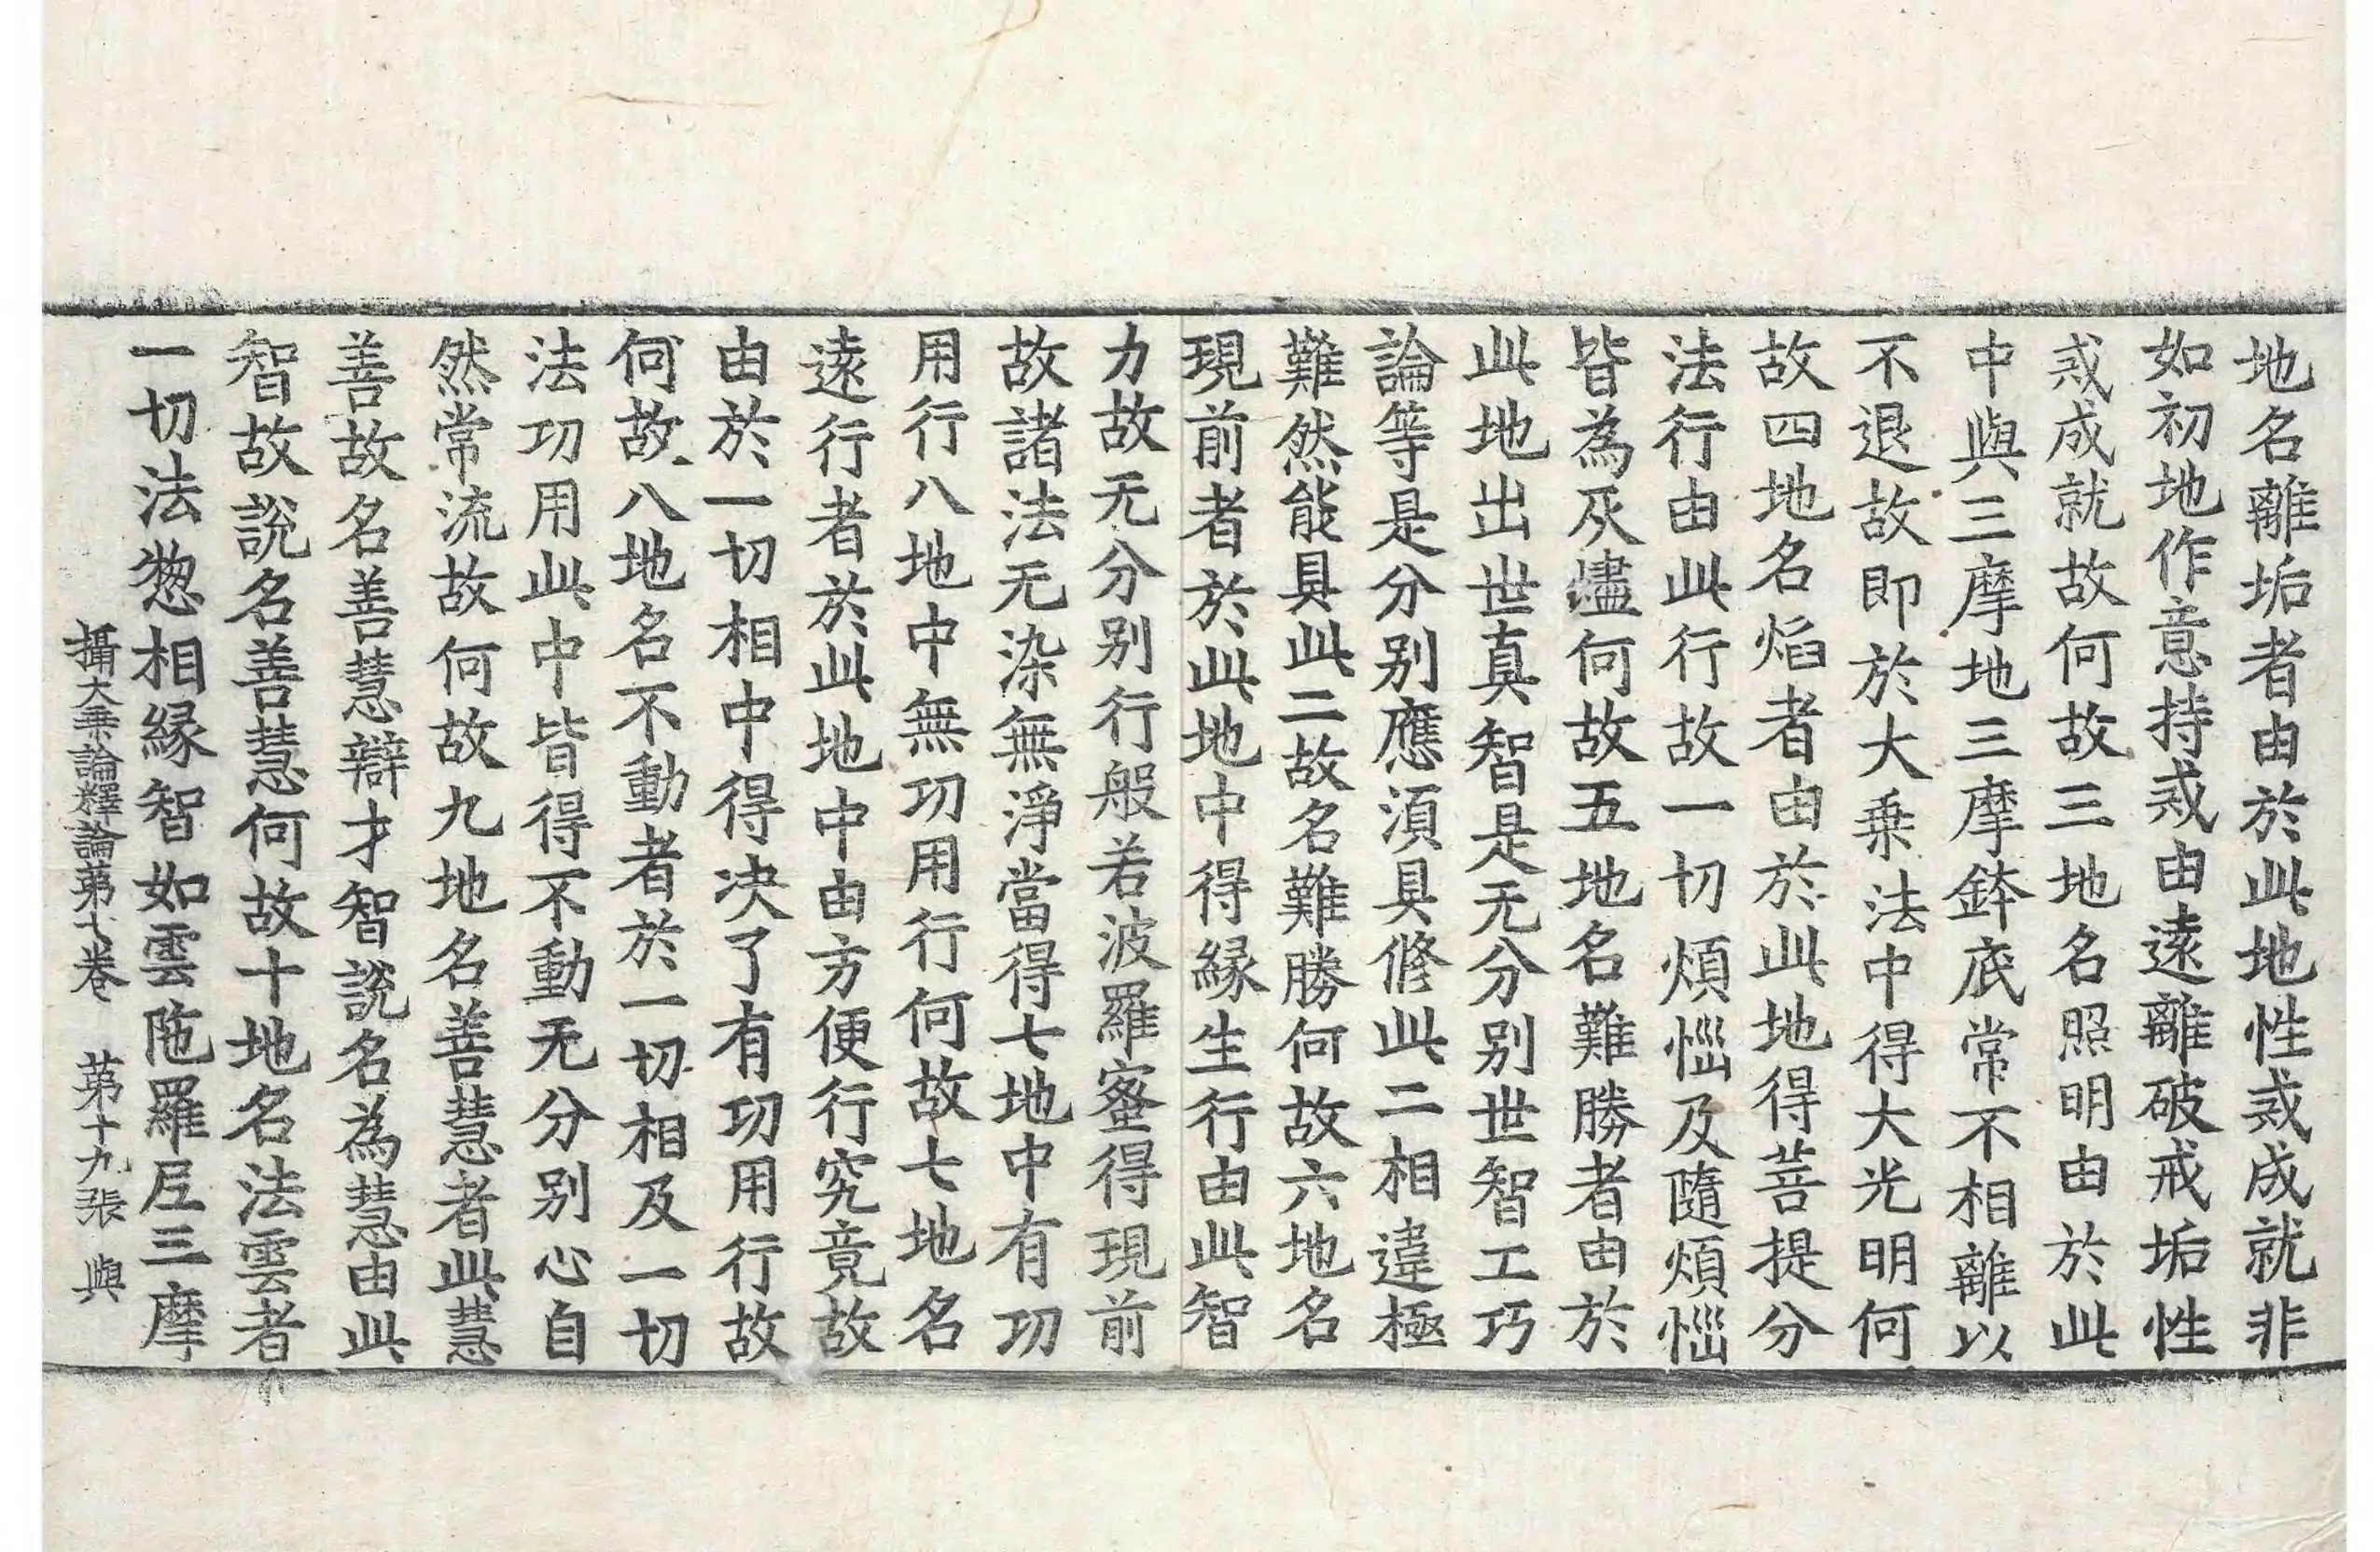 地名離垢者由於此地性戒成就非
如初地作意持戒由遠離破戒垢性
戒成就故何故三地名照明由於此
中與三摩地三摩鉢底常不相離以
不退故即於大乗法中得大光明何
故四地名焰者由於此地得菩提分
法行由此行故一切煩惱及隨煩惱
皆為灰燼何故五地名難勝者由於
此地出世真智是无分別世智工巧
論等是分別應須具修此二相違極
難然能具此二故名難勝何故六地名
現前者於此地中得緣生行由此智
力故无分別行般若波羅蜜得現前
故諸法无染無淨當得七地中有功
用行八地中無功用行何故七地名
遠行者於此地中由方便行究竟故
由於一切相中得決了有功用行故
何故八地名不動者於一切相及一切
法功用此中皆得不動无分別心自
然常流故何故九地名善慧者此慧
善故名善慧辯才智說名為慧由此
智故說名善慧何故十地名法雲者
一切法惣相緣智如雲陁羅尼三摩
攝大乗論釋論第七卷 第十九張 與